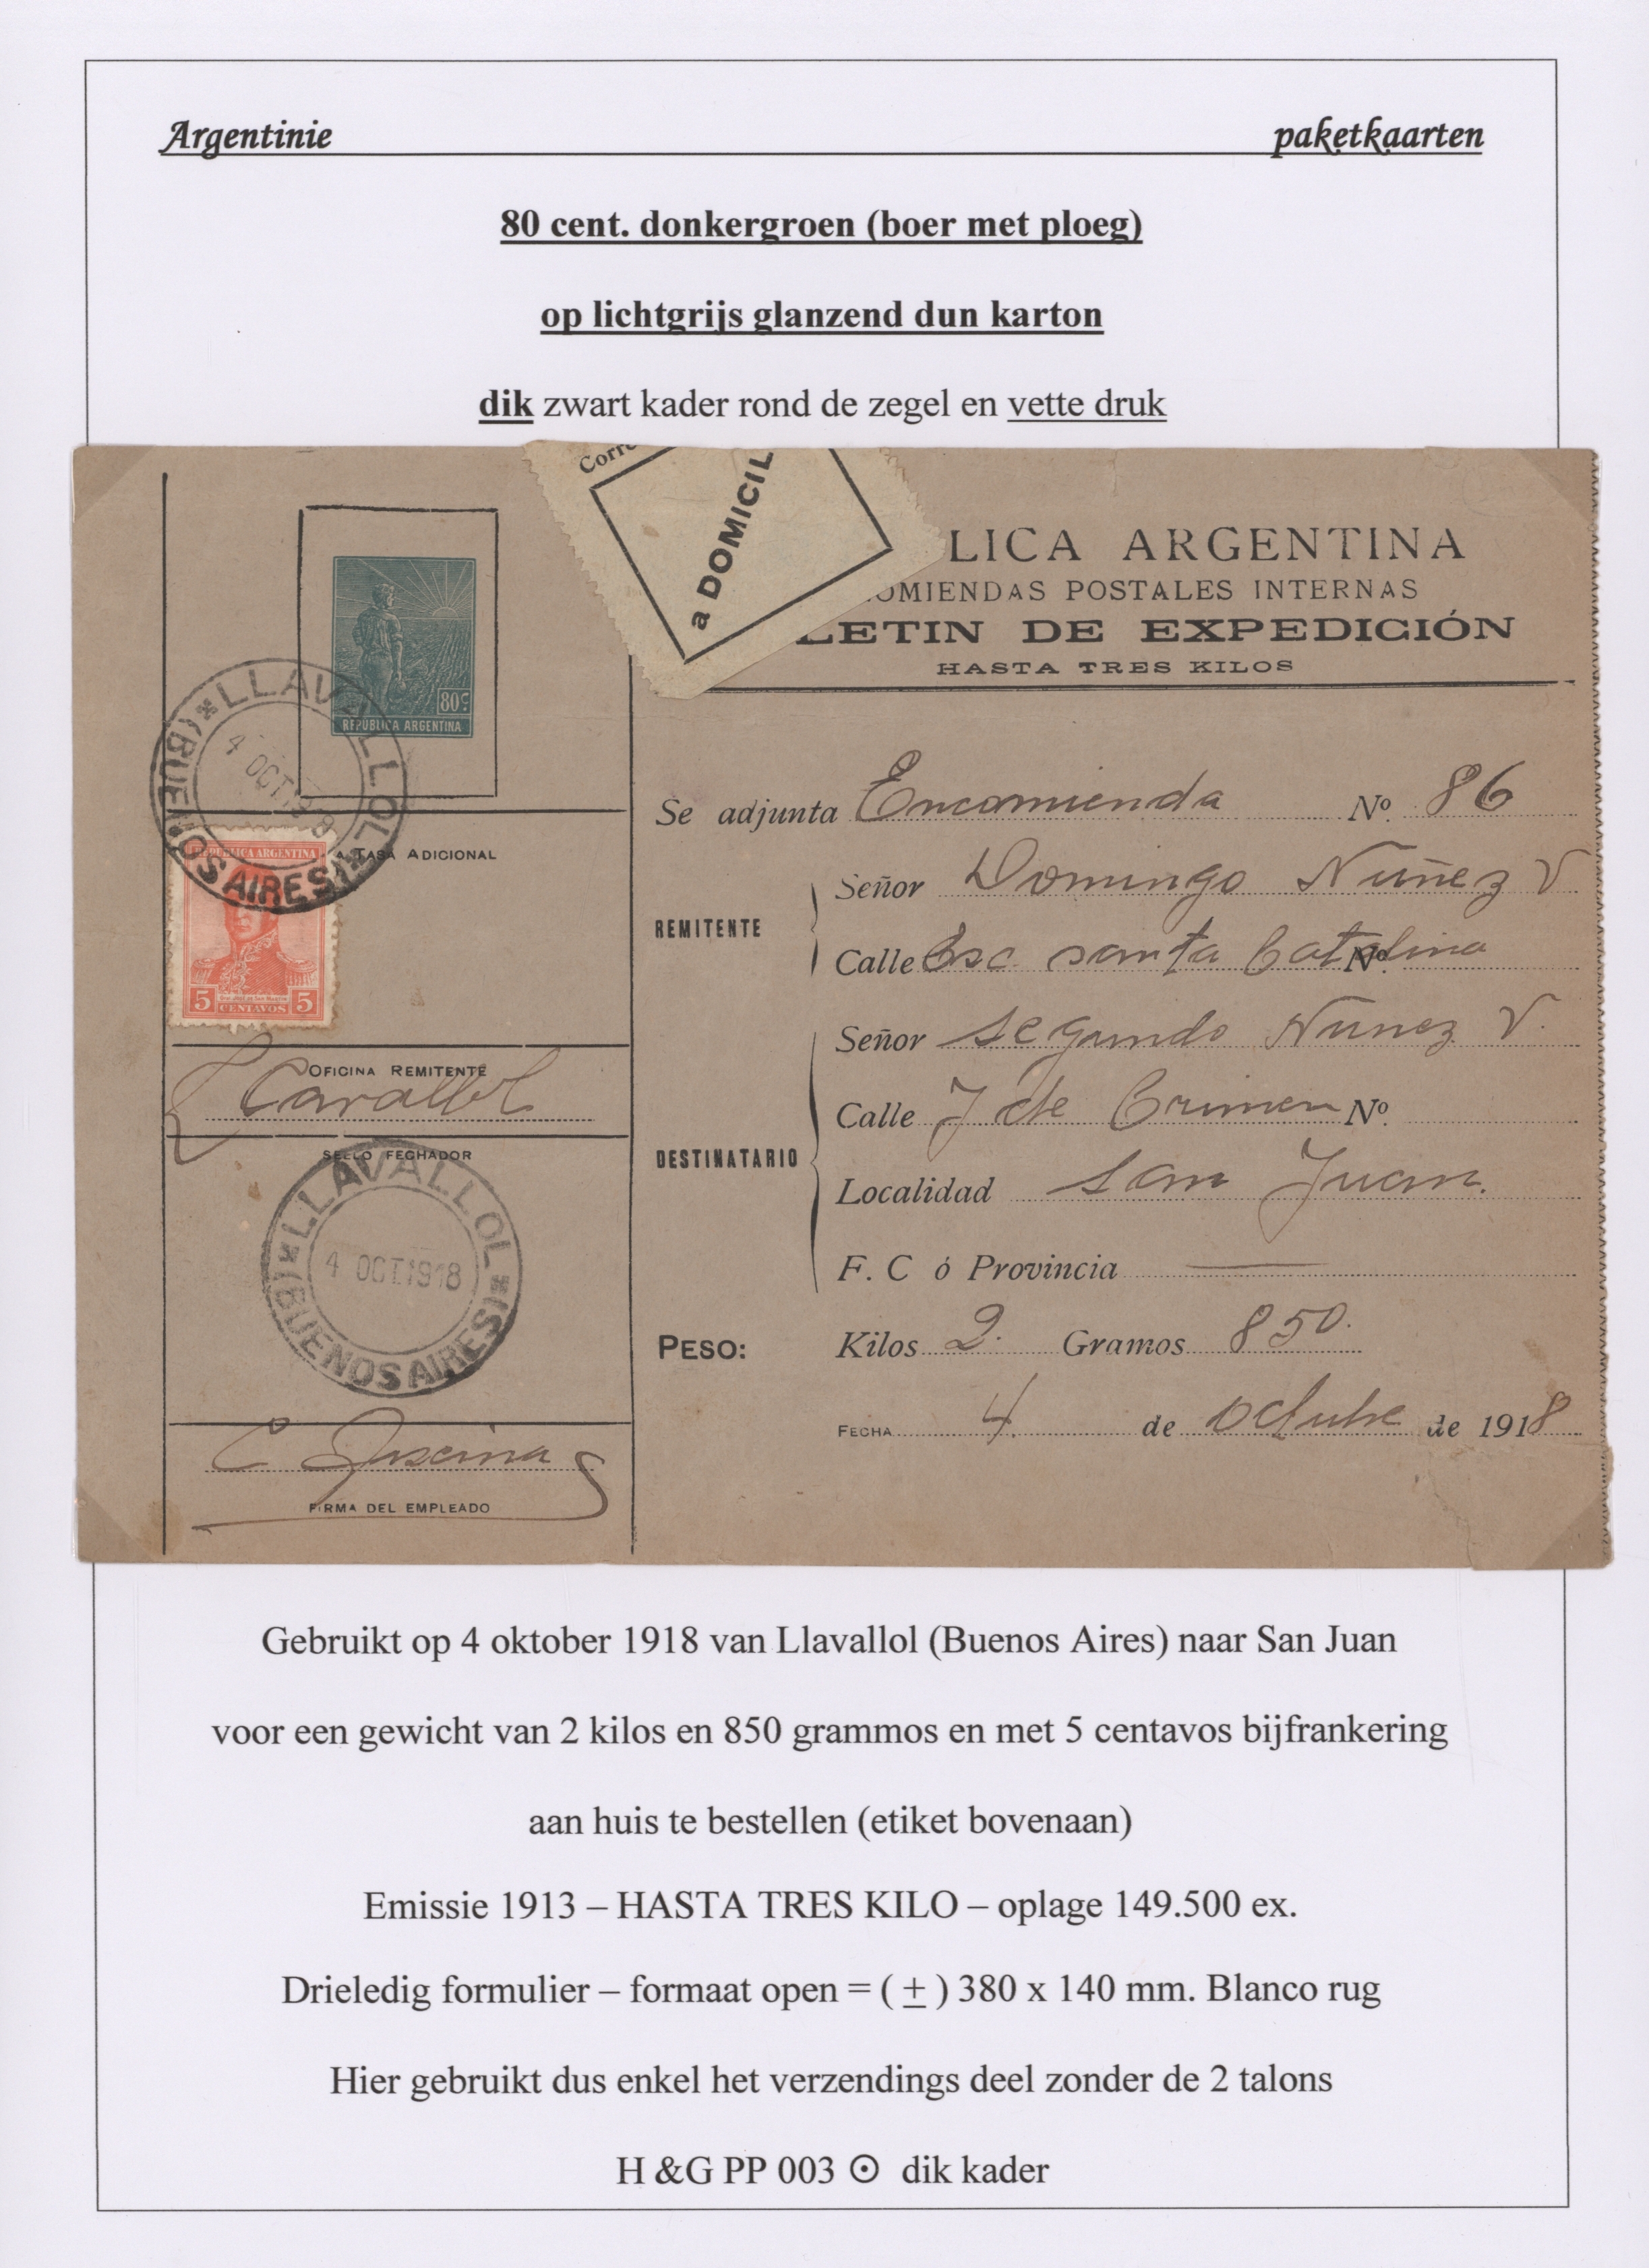 Argentinie paketkaarten
80 cent. donkergroen (boer met ploeg)
op lichtgrijs glanzend dun karton
dik zwart kader rond de zegel en vette druk
Corre
a DOMICIL
LICA ARGENTINA
OMIENDAS POSTALES INTERNAS
LETIN DE EXPEDICIÓN
HASTA TRES KILOS
80 c.
REPUBLICA ARGENTINA
LLAVALLOL
4 OCT.1918
(BUENOS AIRES)
TASA ADICIONAL
REPUBLICA ARGENTINA
5 CENTAVOS 5
OFICINA REMITENTE
Lavallol
SELLO FECHADOR
LLAVALLOL
4 OCT.1918
(BUENOS AIRES)
FIRMA DEL EMPLEADO
Se adjunta Encomienda Nº 86
REMITENTE
Señor Domingo Nuñez V
Calle Esc santa Catalina Nº
DESTINATARIO
Señor segundo Nunez V.
Calle J de Nº
Localidad san Juan.
F. C ó Provincia
PESO: Kilos 2. Gramos 850.
FECHA 4. de octubre de 1918
Gebruikt op 4 oktober 1918 van Llavallol (Buenos Aires) naar San Juan
voor een gewicht van 2 kilos en 850 grammos en met 5 centavos bijfrankering
aan huis te bestellen (etiket bovenaan)
Emissie 1913 – HASTA TRES KILO – oplage 149.500 ex.
Drieledig formulier – formaat open = ( ± ) 380 x 140 mm. Blanco rug
Hier gebruikt dus enkel het verzendings deel zonder de 2 talons
H &G PP 003 ⊙ dik kader